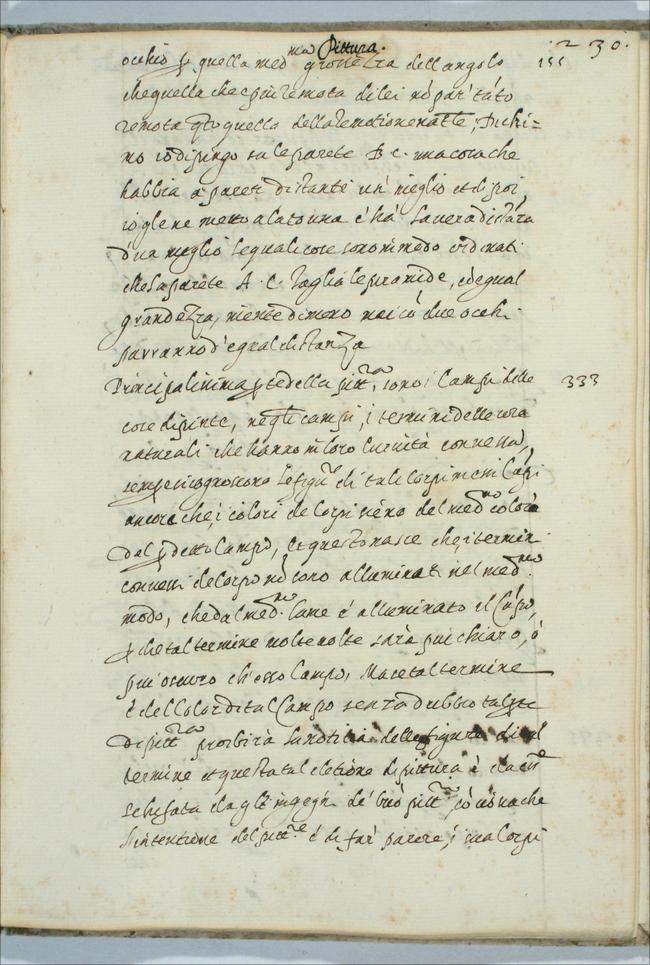 Pittura. 230.
occhio p quella med.ma grossezza dell angolo 155
che quella che e piu remota di lei nõ par tãto
remota qto quella della remotione
no io dipingo su la parete B c. una cosa che
habbia a parer distante un' meglio et di poi
io gle ne metto a lato una c'hà la vera distãza
d'un meglio le quali cose sono in modo ordinati
che la parete A. C. taglia le piramide, cõ egual
grandezza, niente dimeno mai cõ due occhi
parranno d'egual distanza
Principalissima pte della pittra, sono i Campi delle 333
cose dipinte, negli campi, i termini delle cose
naturali che hanno in loro curvità convessa,
sempre si cognoscono le figure di tali Corpi in essi Cãpi
ancora che, i colori de Corpi sieno del med.mo colore
dal pdetto Campo, et questo nasce che, i termini
convessi de Corpi nõ sono alluminati nel med.mo
modo, che dal med.mo lume é alluminato il Cãpo,
p che tal termine molte volte sarà piu chiaro, ó
piu oscuro ch'esso Campo, Ma se tal termine
é del Color di tal Campo senza dubbio tal pte
di pittra proibirà la notitia della figura di tal
termine et questa tal eletione di pittura é da ess.e
schifata da gl' ingegni de' buõ pittri, cõ cio sia che
l'intentione del pitt.re é di far parere, i sua Corpi